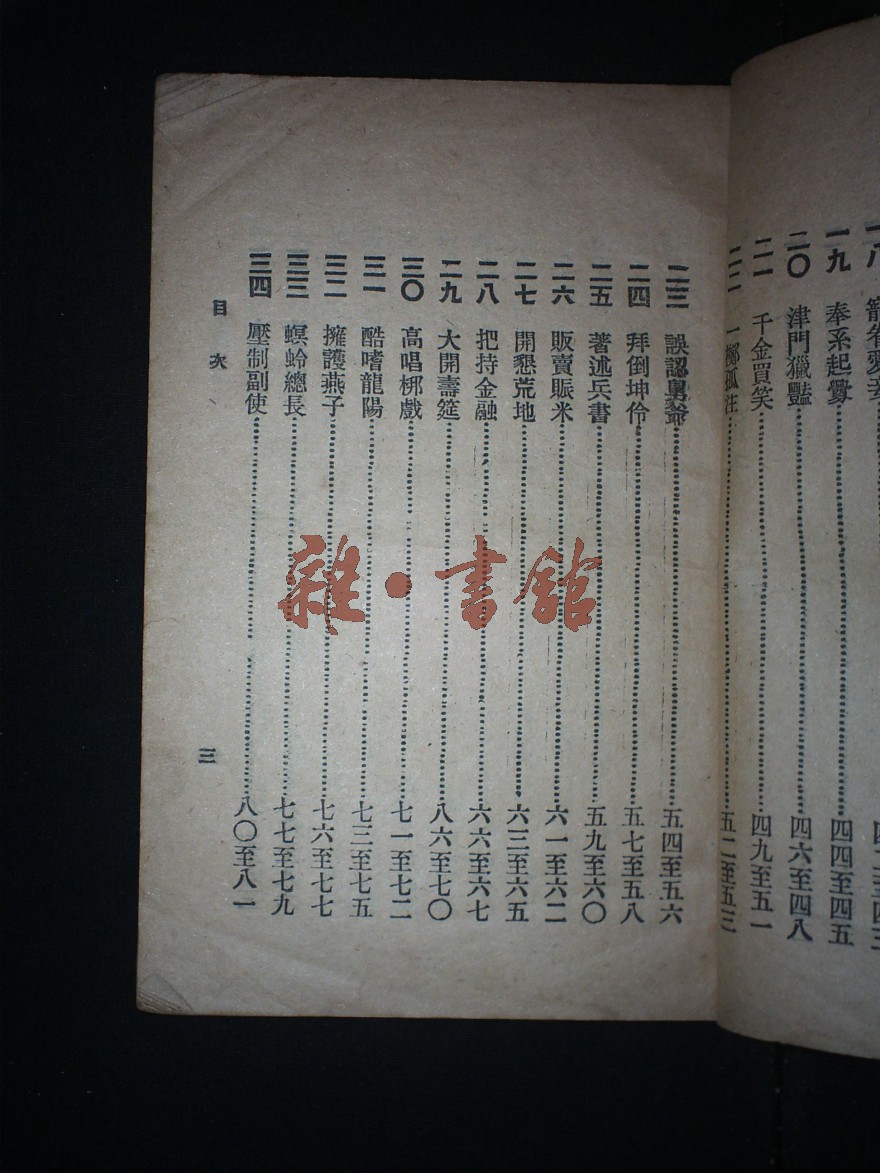 一八 寵眷愛妾 四二至四三
一九 奉系起釁 四四至四五
二〇 津門獵豔 四六至四八
二一 千金買笑 四九至五一
二二 一擲孤注 五二至五三
二三 誤認舅爺 五四至五六
二四 拜倒坤伶 五七至五八
二五 著述兵書 五九至六〇
二六 販賣賑米 六一至六二
二七 開懇荒地 六三至六五
二八 把持金融 六六至六七
二九 大開壽筵 八六至七〇
三〇 高唱梆戲 七一至七二
三一 酷嗜龍陽 七三至七五
三二 擁護燕子 七六至七七
三三 螟蛉總長 七七至七九
三四 壓制副使 八〇至八一
目次
三
雜·書館